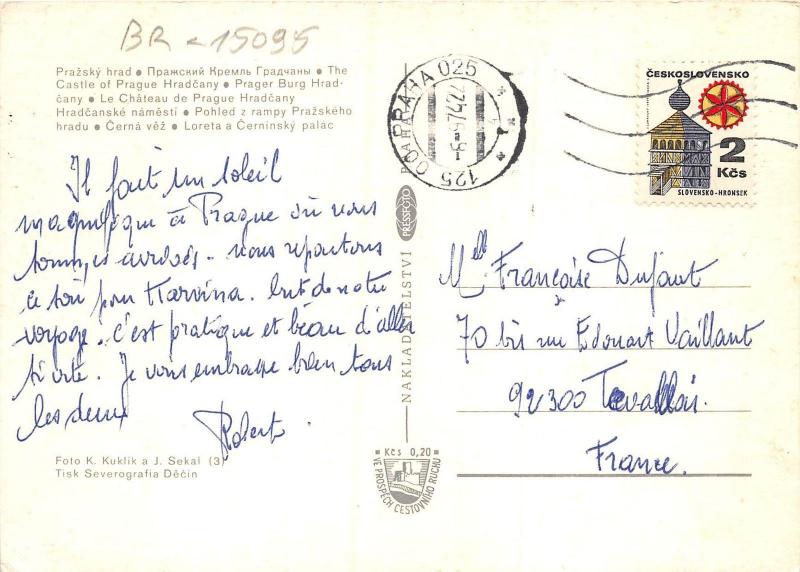 BR - 15095
Pražský hrad • Пражский Кремль Градчаны • The
Castle of Prague Hradčany • Prager Burg Hrad-
čany • Le Château de Prague Hradčany
Hradčanské náměstí • Pohled z rampy Pražského
hradu • Černá věž • Loreta a Černínský palác
Il fait un soleil
magnifique à Prague où nous
sommes arrivés. nous repartons
ce soir pour Karvina. but de notre
voyage. c'est pratique et beau d'aller
si vite. Je vous embrasse bien tous
les deux
Robert
Foto K. Kuklík a J. Sekal (3)
Tisk Severografia Děčín
NAKLADATELSTVÍ PRESSFOTO PRAHA
Kčs 0,20
VE PROSPĚCH CESTOVNÍHO RUCHU
PRAHA 025
125 00
ČESKOSLOVENSKO
2
Kčs
SLOVENSKO-HRONSEK
Mlle Françoise Dufaut
70 bis rue Edouart Vaillant
92300 Levallois.
France.